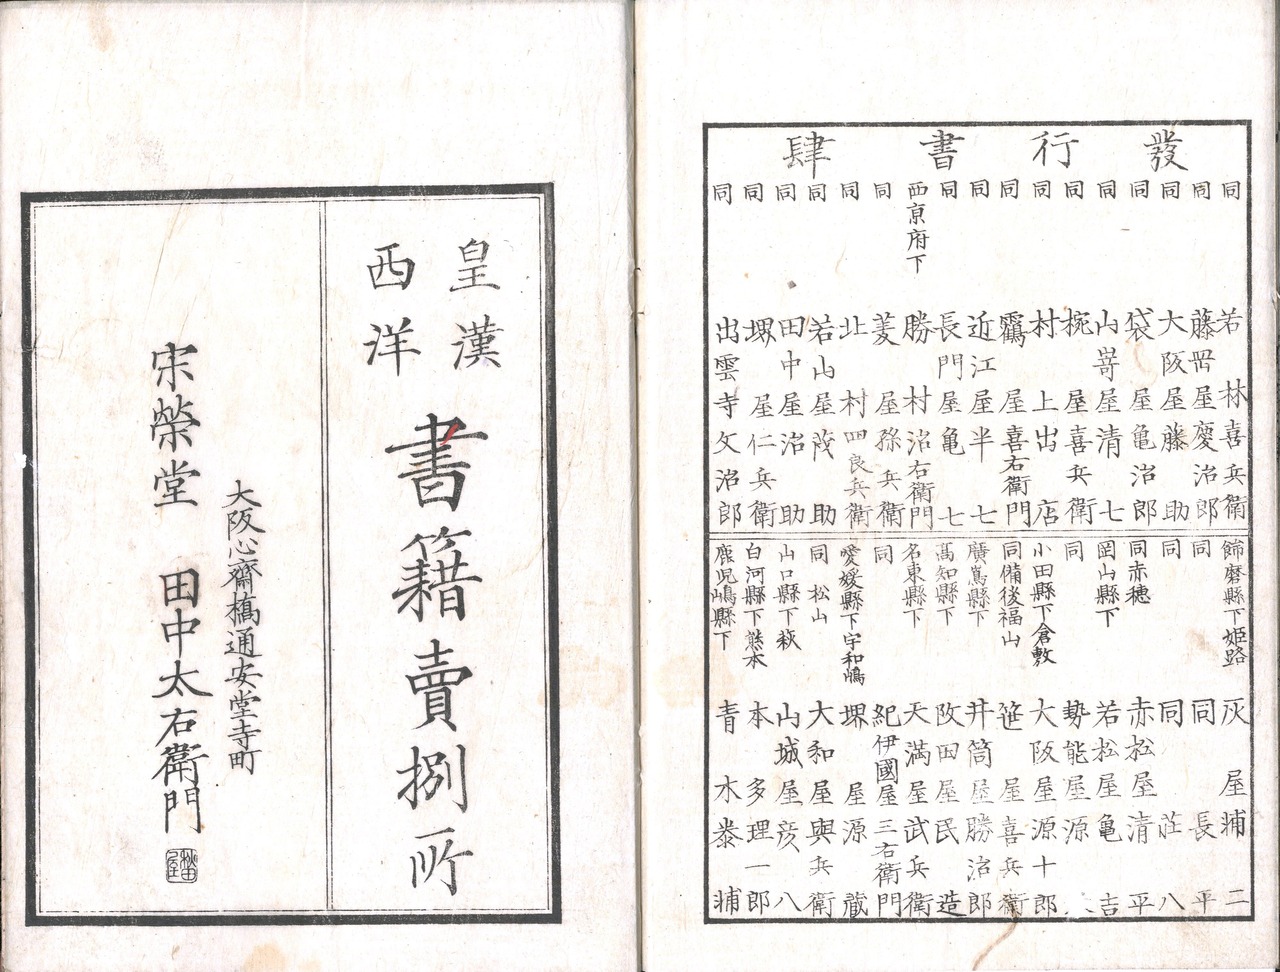 發行書肆
同 若林喜兵衛
同 藤岡屋慶治郎
同 大阪屋藤助
同 袋屋亀治郎
同 山嵜屋清七
同 椀屋喜兵衛
同 村上出店
同 靍屋喜右衛門
同 近江屋半七
同 長門屋亀七
西京府下 勝村治右衛門
同 菱屋孫兵衛
同 北村四良兵衛
同 若山屋茂助
同 田中屋治助
同 堺屋仁兵衛
同 出雲寺文治郎
飾磨縣下姫路 灰屋捕二
同 同長平
同 同荘八
同赤穂 赤松屋清平
岡山縣下 若松屋亀吉
同 勢能屋源
小田縣下倉敷 大阪屋源十郎
同備後福山 笹屋喜兵衛
廣嶌縣下 井筒屋勝治郎
高知縣下 阪田屋民造
名東縣下 天満屋武兵衛
同 紀伊國屋三右衛門
愛媛縣下宇和嶋 堺屋源蔵
同松山 大和屋與兵衛
山口縣下萩 山城屋彦八
白河縣下熊本 本多理一郎
鹿児嶋縣下 青木泰浦
皇漢
西洋
書籍賣捌所
大阪心齋橋通安堂寺町
宋榮堂 田中太右衛門